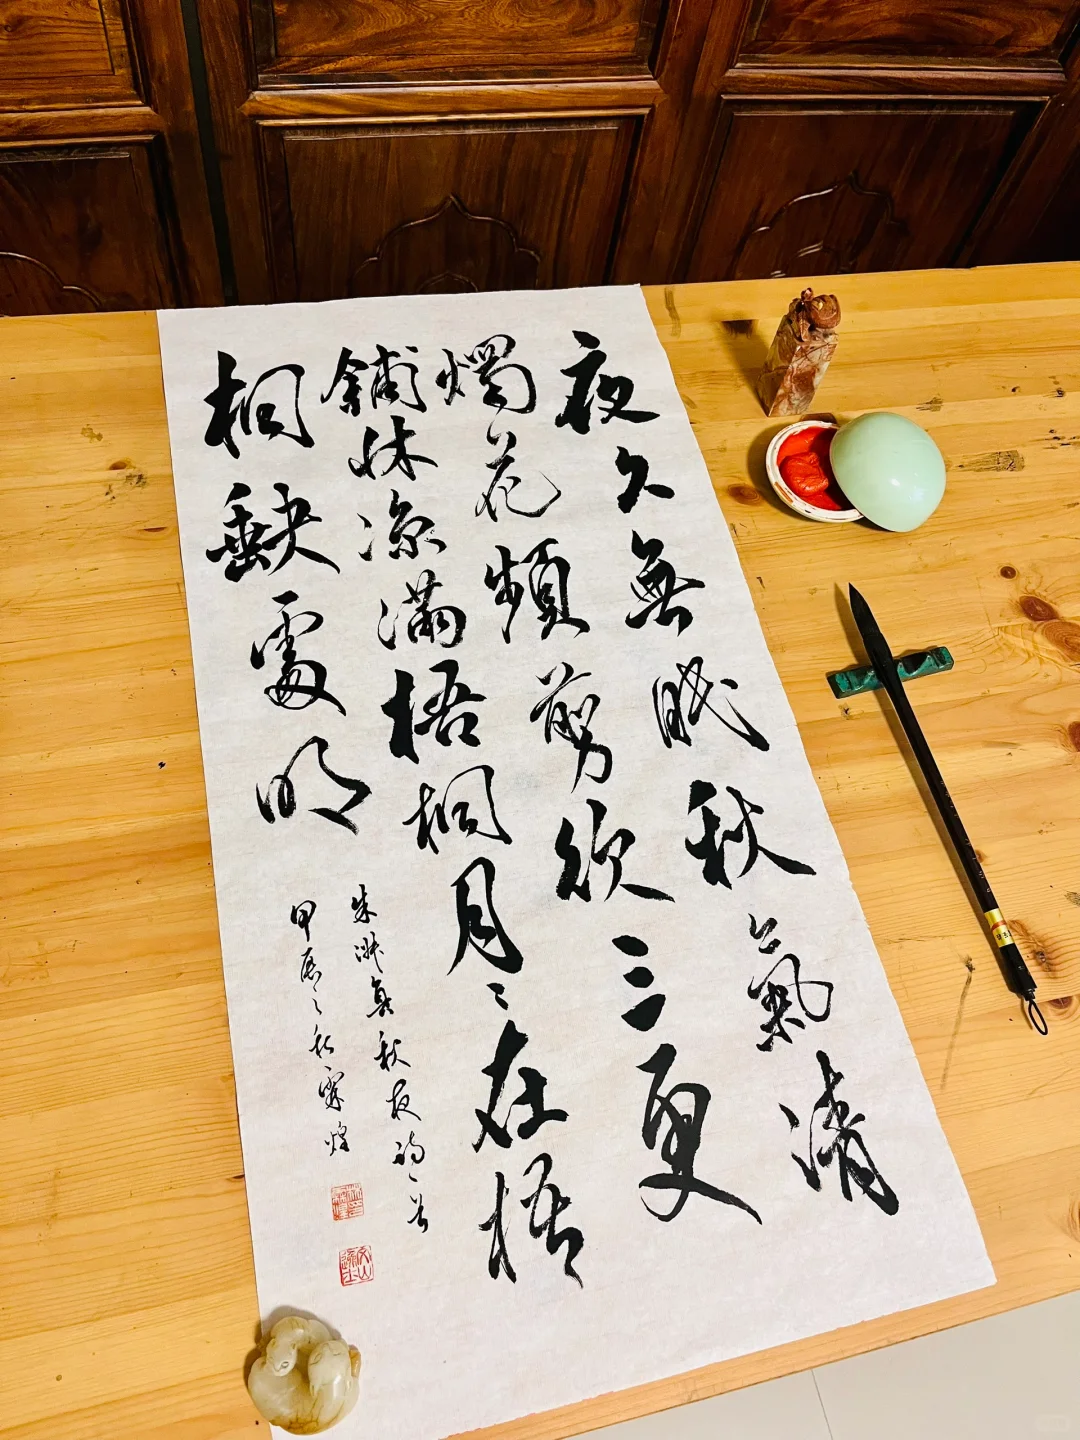 夜久無眠秋氣清
燭花頻剪欲三更
鋪床涼滿梧桐月月在梧
桐缺處明
朱淑真秋夜詩一首
甲辰之秋霖煌